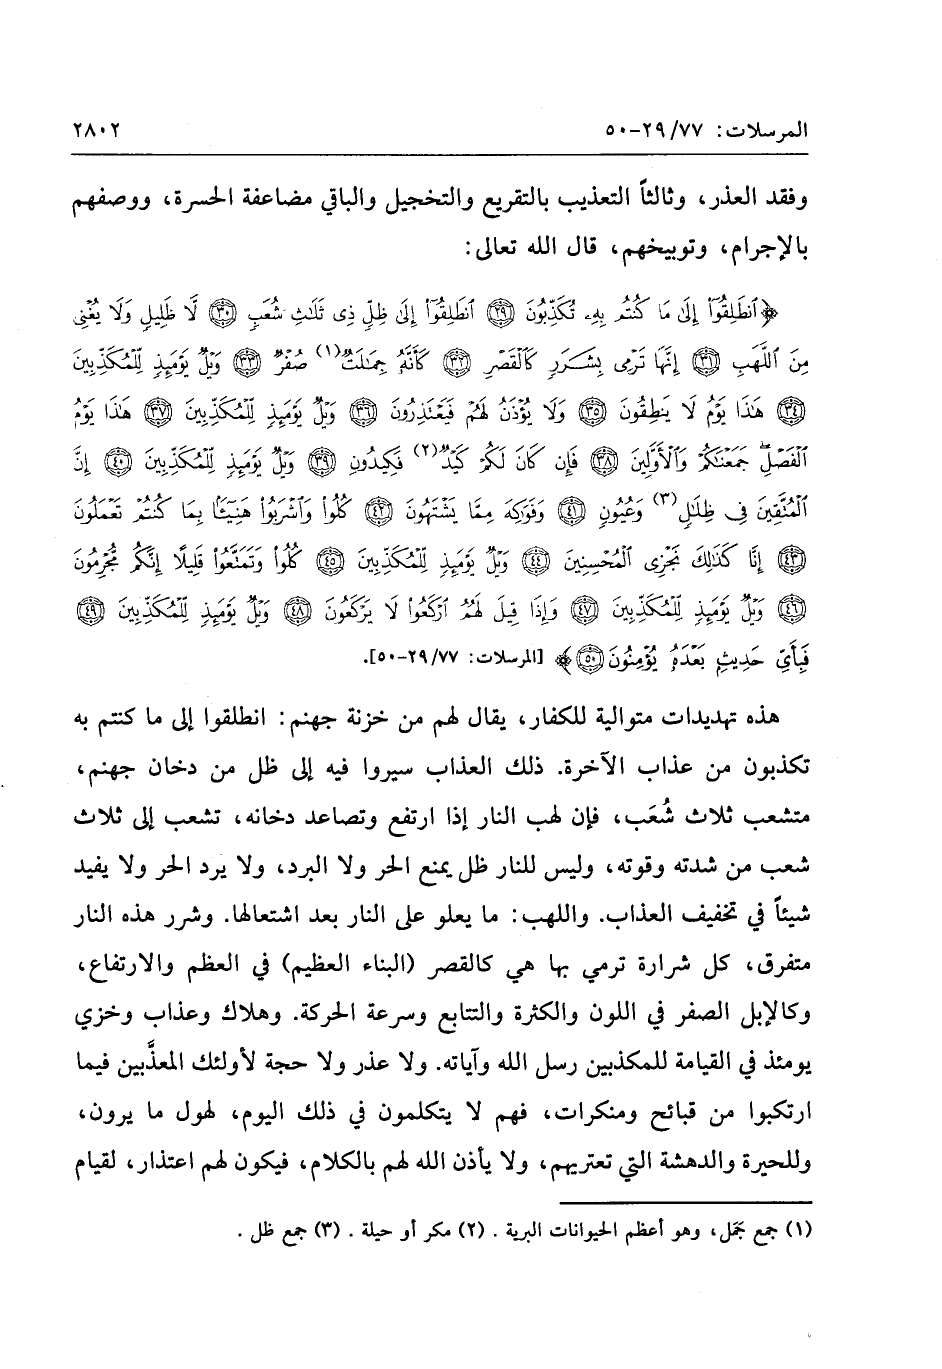 المرسلات: ٢٩/٧٧-٥٠ ٢٨٠٢
وفقد العذر، وثالثاً التعذيب بالتقريع والتخجيل والباقي مضاعفة الحسرة، ووصفهم
بالإجرام، وتوبيخهم، قال الله تعالى:
﴿ٱنطَلِقُوٓا۟ إِلَىٰ مَا كُنتُم بِهِۦ تُكَذِّبُونَ ٢٩ ٱنطَلِقُوٓا۟ إِلَىٰ ظِلٍّ ذِى ثَلَٰثِ شُعَبٍ ٣٠ لَّا ظَلِيلٍ وَلَا يُغْنِى
مِنَ ٱللَّهَبِ ٣١ إِنَّهَا تَرْمِى بِشَرَرٍ كَٱلْقَصْرِ ٣٢ كَأَنَّهُۥ جِمَٰلَتٌ(١) صُفْرٌ ٣٣ وَيْلٌ يَوْمَئِذٍ لِّلْمُكَذِّبِينَ
٣٤ هَٰذَا يَوْمُ لَا يَنطِقُونَ ٣٥ وَلَا يُؤْذَنُ لَهُمْ فَيَعْتَذِرُونَ ٣٦ وَيْلٌ يَوْمَئِذٍ لِّلْمُكَذِّبِينَ ٣٧ هَٰذَا يَوْمُ
ٱلْفَصْلِۖ جَمَعْنَٰكُمْ وَٱلْأَوَّلِينَ ٣٨ فَإِن كَانَ لَكُمْ كَيْدٌ(٢) فَكِيدُونِ ٣٩ وَيْلٌ يَوْمَئِذٍ لِّلْمُكَذِّبِينَ ٤٠ إِنَّ
ٱلْمُتَّقِينَ فِى ظِلَٰلٍ(٣) وَعُيُونٍ ٤١ وَفَوَٰكِهَ مِمَّا يَشْتَهُونَ ٤٢ كُلُوا۟ وَٱشْرَبُوا۟ هَنِيٓـًٔۢا بِمَا كُنتُمْ تَعْمَلُونَ
٤٣ إِنَّا كَذَٰلِكَ نَجْزِى ٱلْمُحْسِنِينَ ٤٤ وَيْلٌ يَوْمَئِذٍ لِّلْمُكَذِّبِينَ ٤٥ كُلُوا۟ وَتَمَتَّعُوا۟ قَلِيلًا إِنَّكُم مُّجْرِمُونَ
٤٦ وَيْلٌ يَوْمَئِذٍ لِّلْمُكَذِّبِينَ ٤٧ وَإِذَا قِيلَ لَهُمُ ٱرْكَعُوا۟ لَا يَرْكَعُونَ ٤٨ وَيْلٌ يَوْمَئِذٍ لِّلْمُكَذِّبِينَ ٤٩
فَبِأَىِّ حَدِيثٍۭ بَعْدَهُۥ يُؤْمِنُونَ ٥٠﴾ [المرسلات: ٢٩/٧٧-٥٠].
هذه تهديدات متوالية للكفار، يقال لهم من خزنة جهنم: انطلقوا إلى ما كنتم به
تكذبون من عذاب الآخرة. ذلك العذاب سيروا فيه إلى ظل من دخان جهنم،
متشعب ثلاث شُعَب، فإن لهب النار إذا ارتفع وتصاعد دخانه، تشعب إلى ثلاث
شعب من شدته وقوته، وليس للنار ظل يمنع الحر ولا البرد، ولا يرد الحر ولا يفيد
شيئاً في تخفيف العذاب. واللهب: ما يعلو على النار بعد اشتعالها. وشرر هذه النار
متفرق، كل شرارة ترمي بها هي كالقصر (البناء العظيم) في العظم والارتفاع،
وكالإبل الصفر في اللون والكثرة والتتابع وسرعة الحركة. وهلاك وعذاب وخزي
يومئذ في القيامة للمكذبين رسل الله وآياته. ولا عذر ولا حجة لأولئك المعذَّبين فيما
ارتكبوا من قبائح ومنكرات، فهم لا يتكلمون في ذلك اليوم، لهول ما يرون،
وللحيرة والدهشة التي تعتريهم، ولا يأذن الله لهم بالكلام، فيكون لهم اعتذار، لقيام
(١) جمع جَمَل، وهو أعظم الحيوانات البرية. (٢) مكر أو حيلة. (٣) جمع ظل.